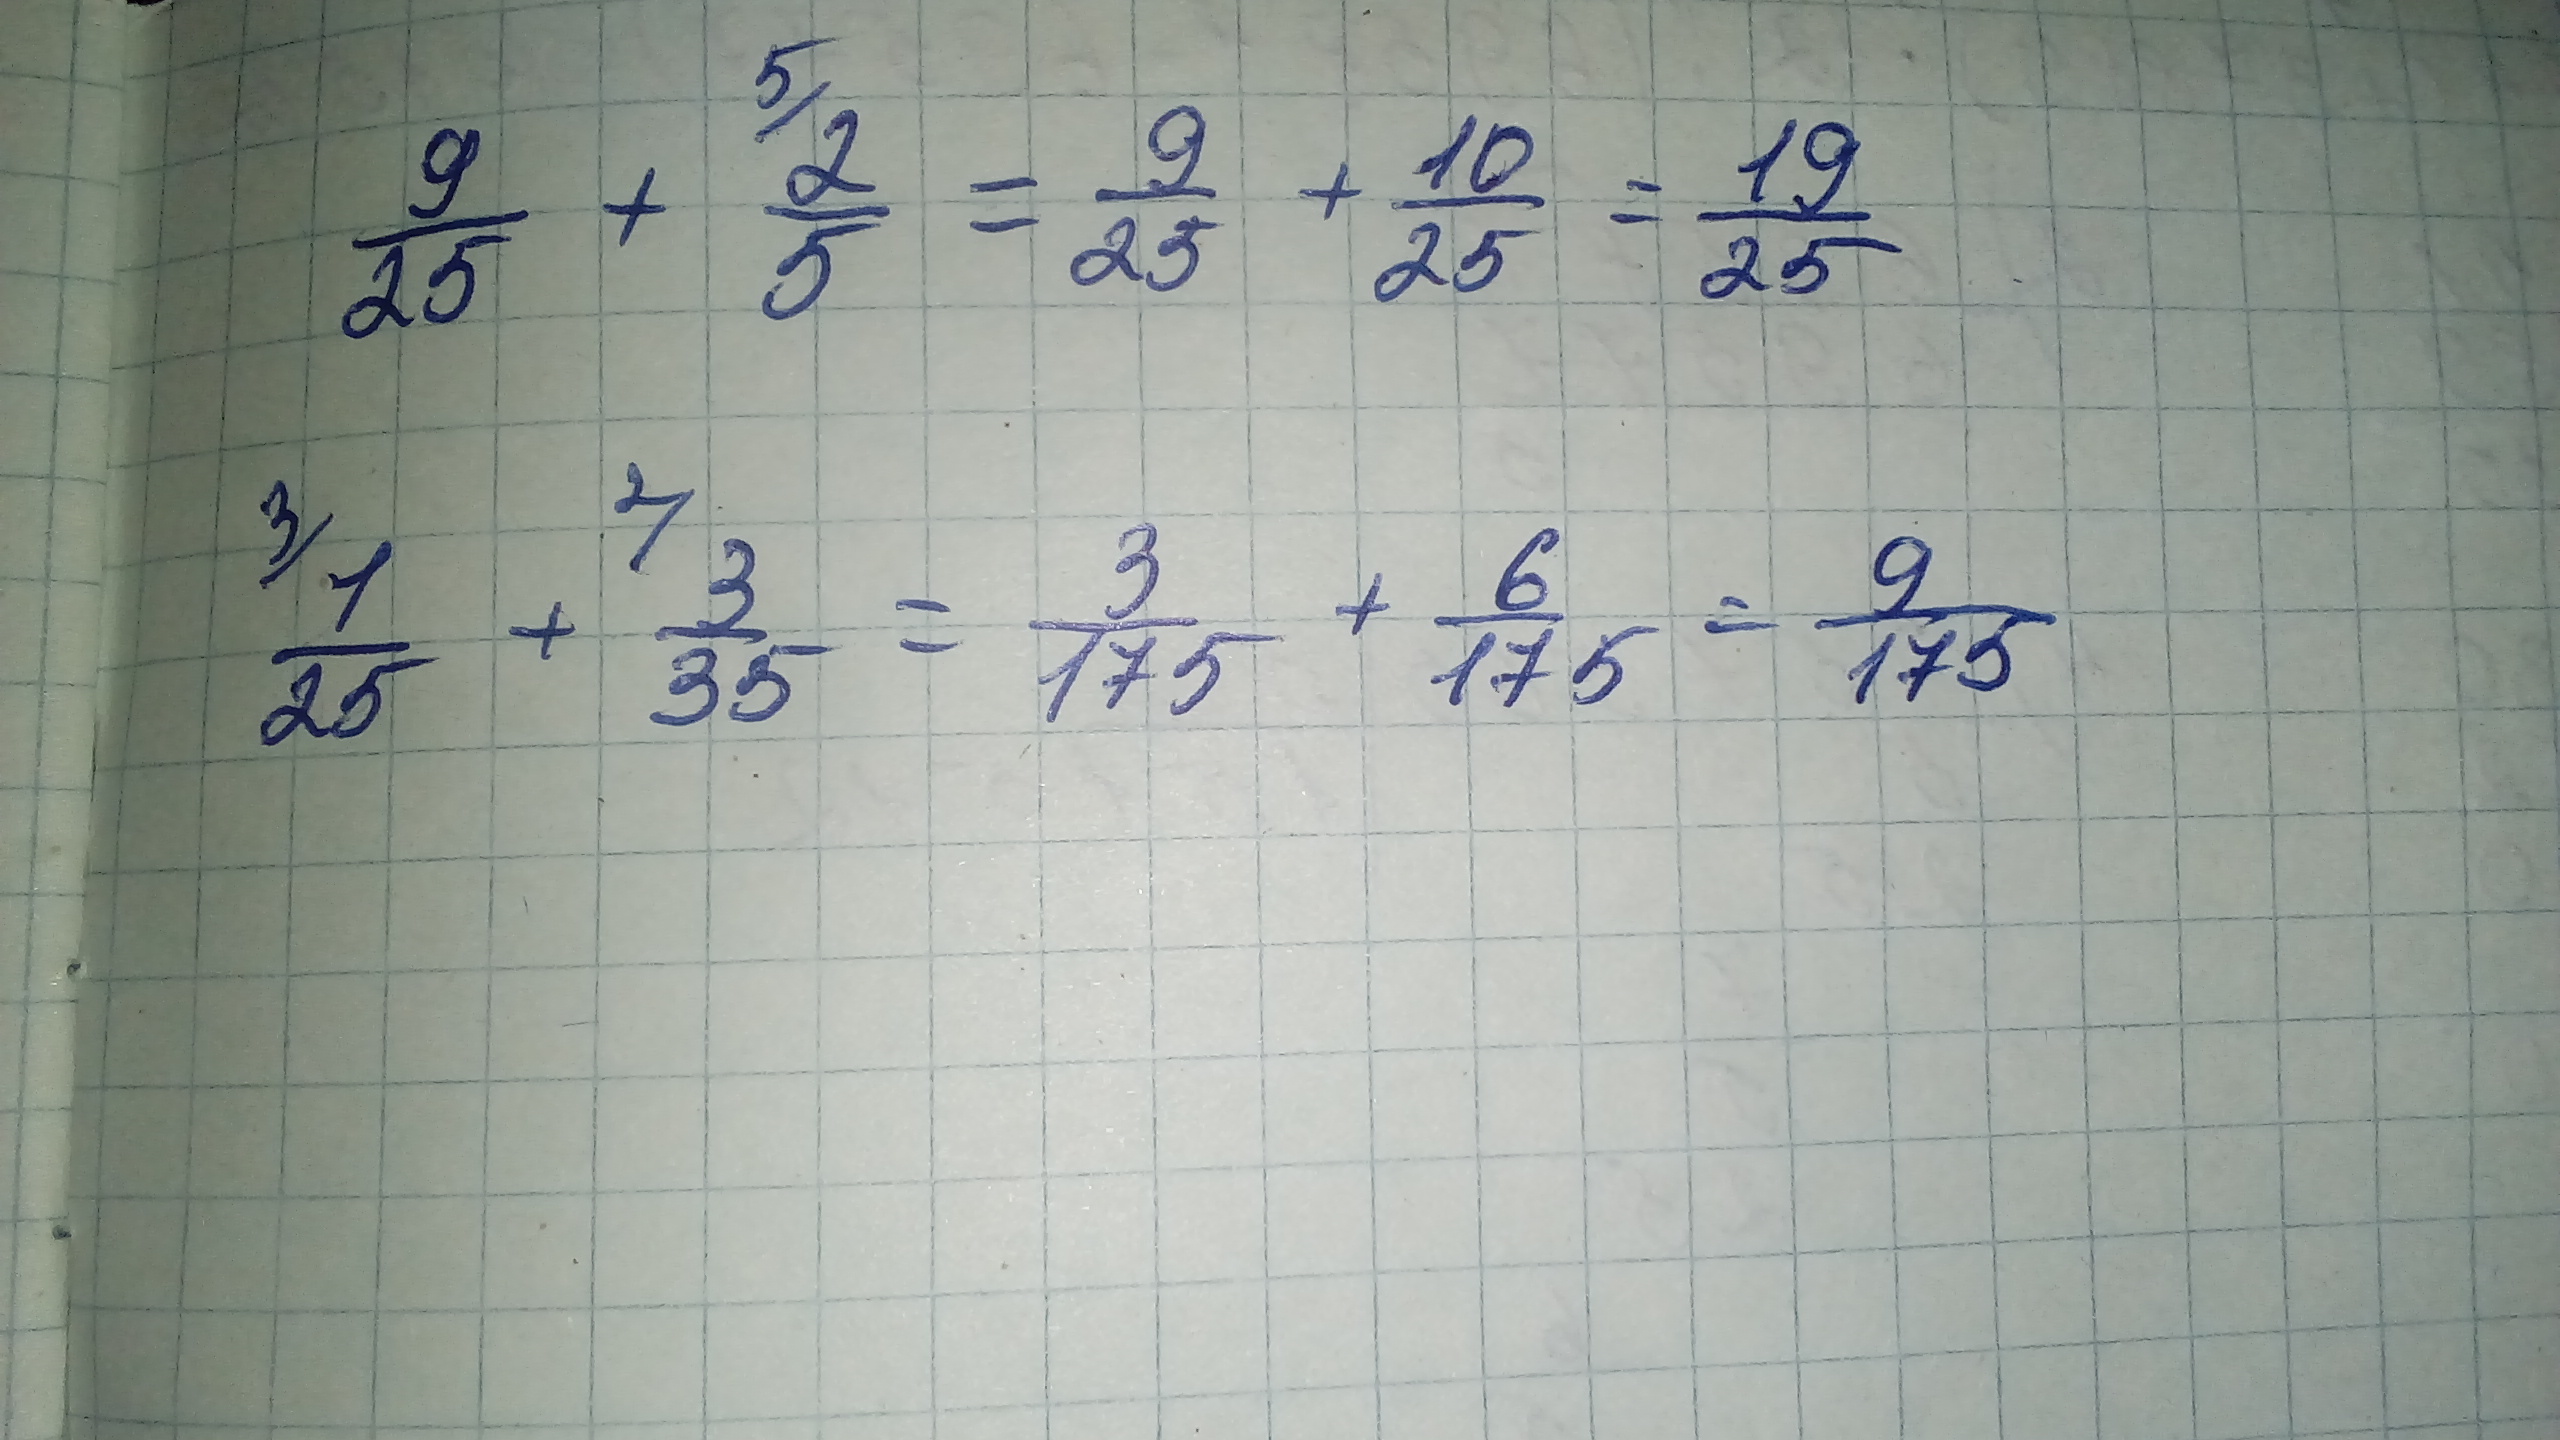 9/25 + 5/ 2/5 = 9/25 + 10/25 = 19/25
3/ 1/25 + 2/ 3/35 = 3/175 + 6/175 = 9/175